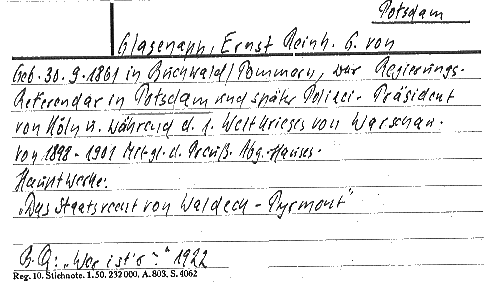 Potsdam
Glasenapp, Ernst Reinh. G. von
Geb. 30.9.1861 in Buchwald/Pommern, war Regierungs-
Referendar in Potsdam und später Polizei-Präsident
von Köln u. während d. 1. Weltkrieges von Warschau.
Von 1898-1901 Mitgl. d. Preuß. Abg.-Hauses.
Hauptwerke:
„Das Staatsrecht von Waldeck-Pyrmont"
B.Q.: „Wer ist's?" 1922
Reg. 10. Stichnote. 1. 50. 232 000. A. 803. S. 4062